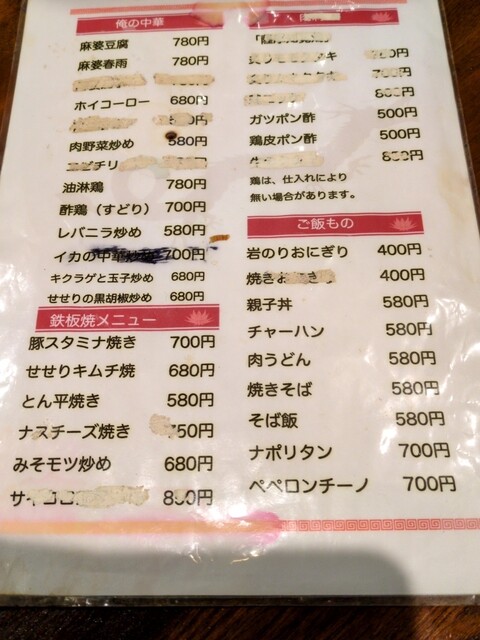 俺の中華
麻婆豆腐 780円
麻婆春雨 780円
ホイコーロー 680円
肉野菜炒め 580円
チリ
油淋鶏 780円
酢鶏（すどり） 700円
レバニラ炒め 580円
イカの中華炒め 700円
キクラゲと玉子炒め 680円
せせりの黒胡椒炒め 680円
鉄板焼メニュー
豚スタミナ焼き 700円
せせりキムチ焼 680円
とん平焼き 580円
ナスチーズ焼き 750円
みそモツ炒め 680円
サイコロ 880円
ガツポン酢 500円
鶏皮ポン酢 500円
鶏は、仕入れにより
無い場合があります。
ご飯もの
岩のりおにぎり 400円
焼きおにぎり 400円
親子丼 580円
チャーハン 580円
肉うどん 580円
焼きそば 580円
そば飯 580円
ナポリタン 700円
ペペロンチーノ 700円